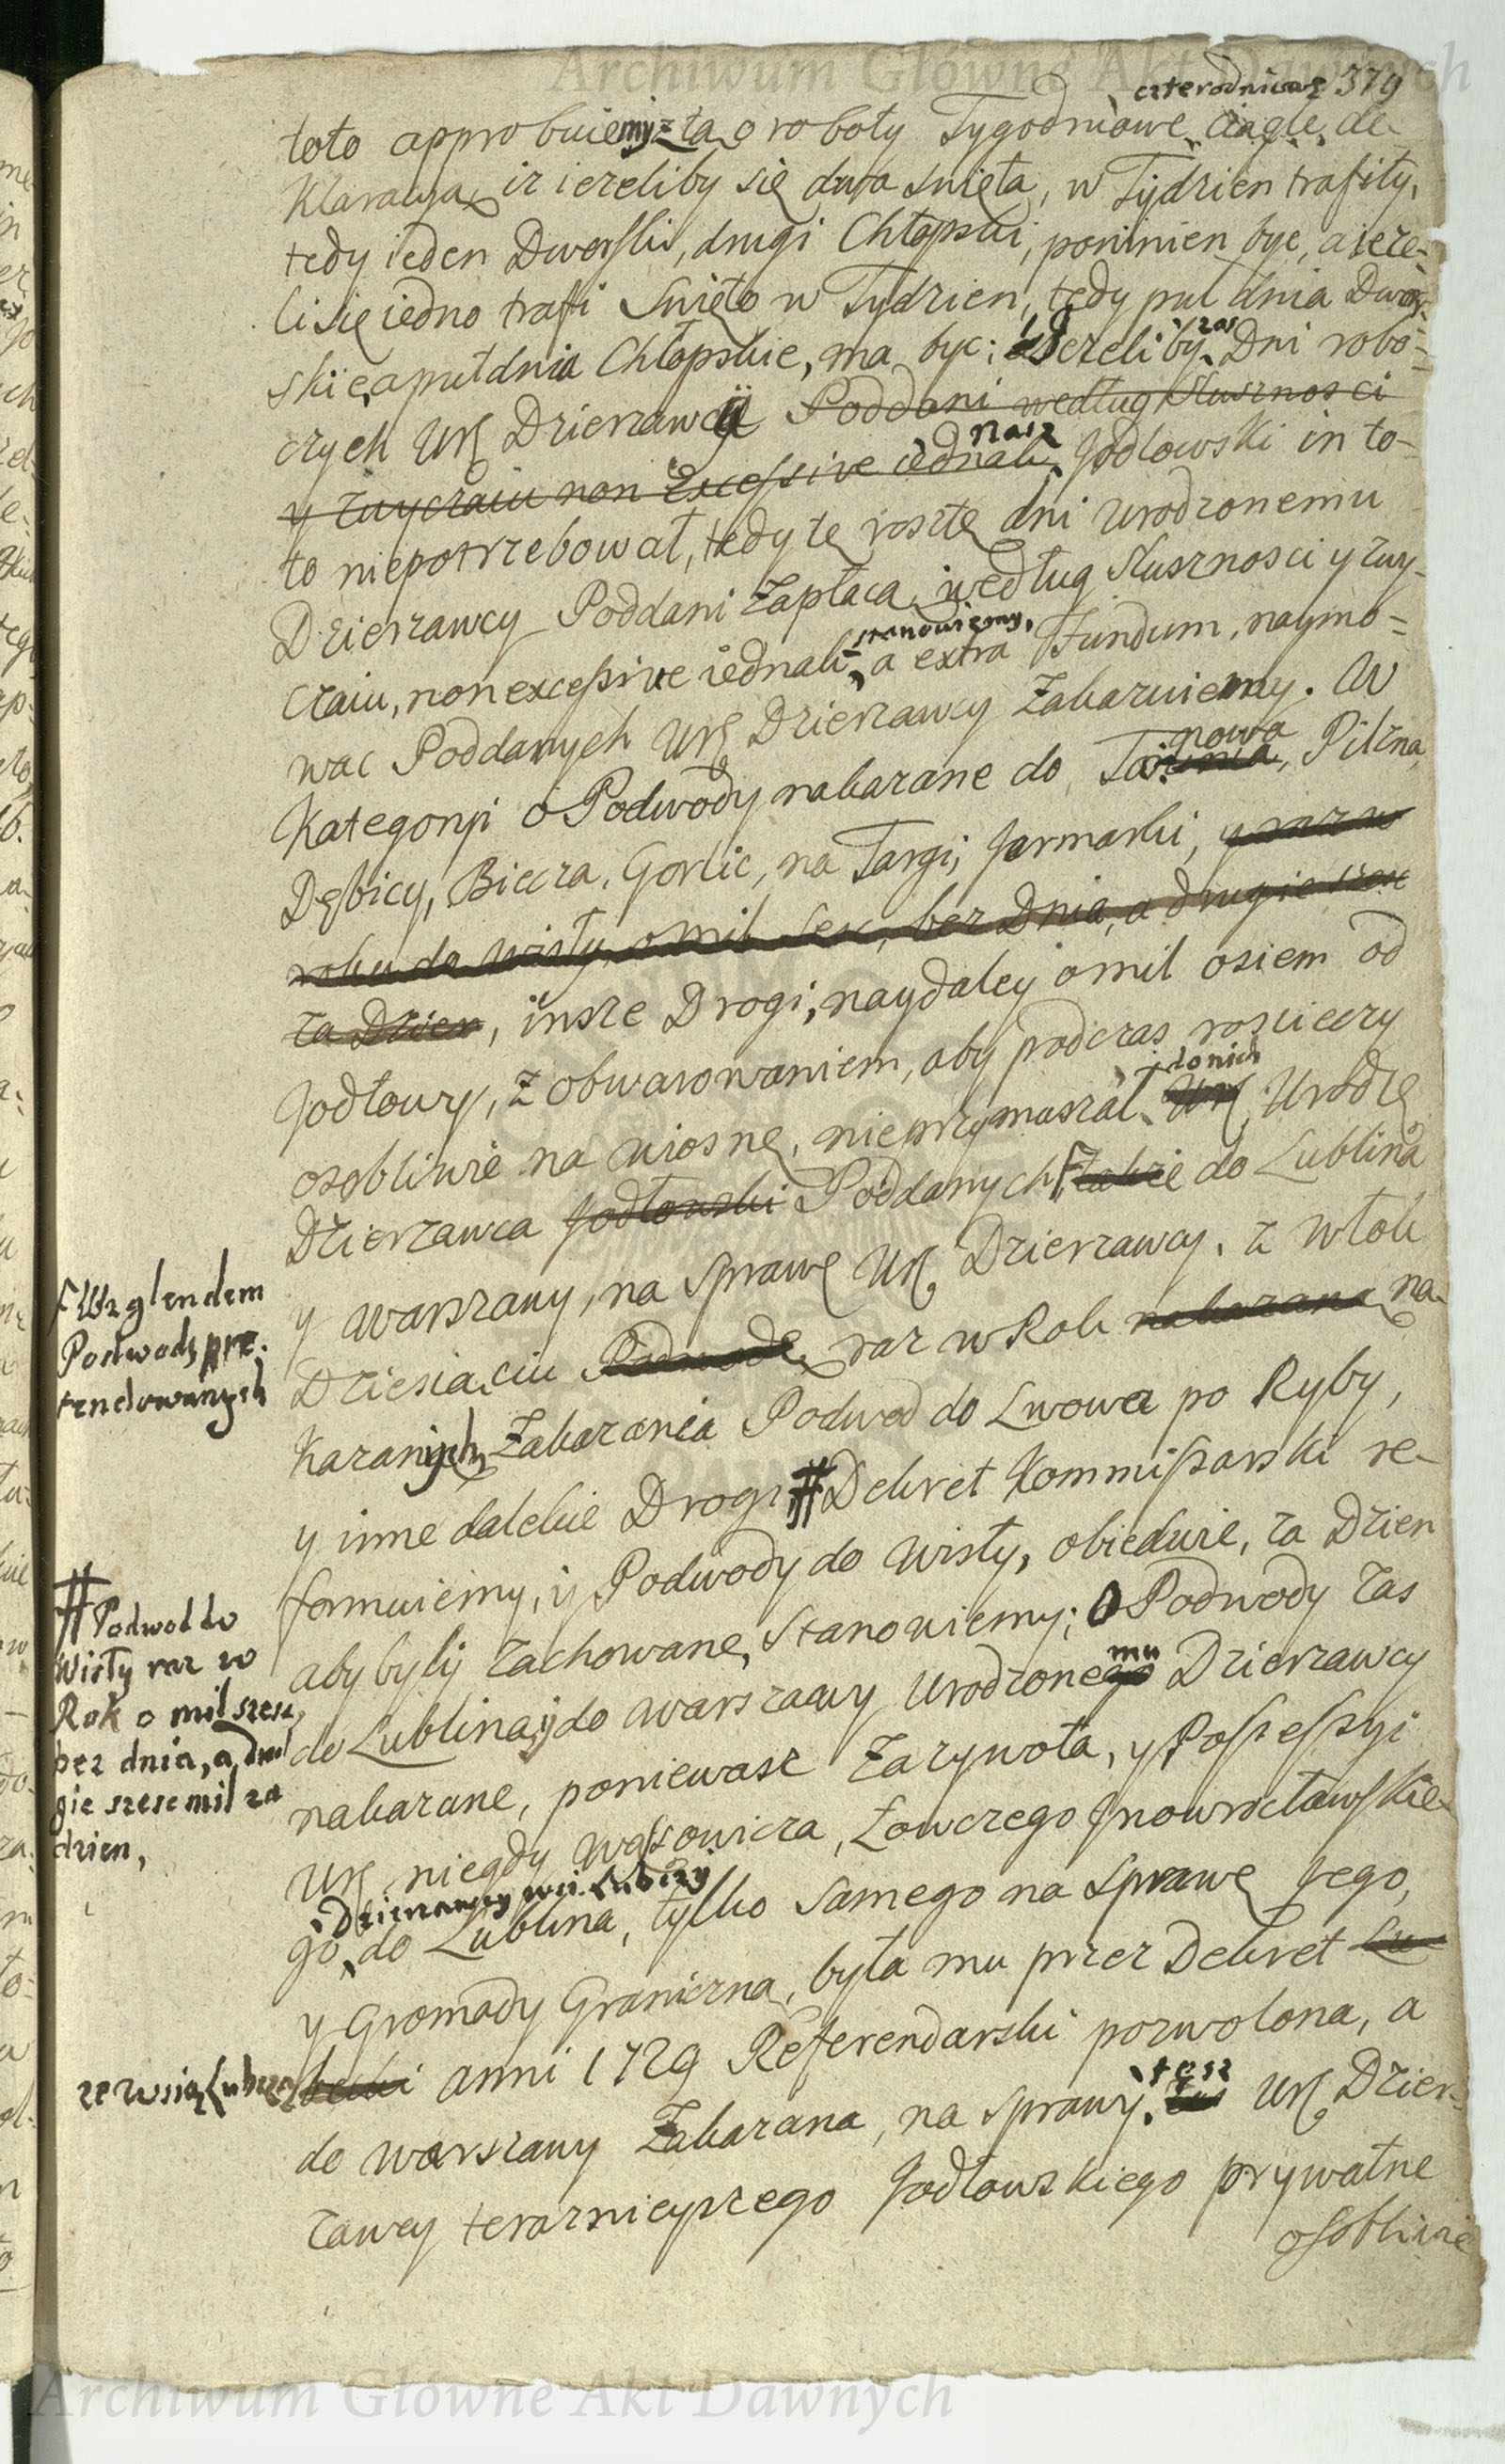 Archiwum Główne Akt Dawnych
379
czterodniowe
toto approbuiemy z tą o roboty Tygodniowe ciągłe de-
klaracyą, iż ieżeliby się dwa święta, w Tydzien trafiły,
tedy ieden Dworski, drugi Chłopski, powinien bydz, a ieże-
li się iedno trafi Swięto w Tydzien, tedy puł dnia Dwor-
skie, a puł dnia Chłopskie, ma byc; Jezeliby zas Dni robo-
czych Ur. Dzierzawcy Poddani według słusznosci
y zwyczaiu non excessive iednak nasz Jodłowski in to-
to niepotrzebował, tedy tę resztę dni urodzonemu
Dzierzawcy Poddani zapłacą, według słusznosci y zwy-
czaiu, non excessive iednak, stanowiemy, a extra Fundum, naymo-
wac Poddanych Ur. Dzierzawcy zakazuiemy. W
Kategoryi o Podwody nakazane do Tarnowa, Pilzna,
Dębicy, Biecza, Gorlic, na Targi, Jarmarki, y raz w
roku do Wisły, o mil sesc, bez Dnia, a drugie szesc
za Dzien, insze Drogi, naydaley o mil osiem od
Jodłowy, z obwarowaniem, aby podczas roscieczy
osobliwie na wiosnę, nieprzymuszał do nich Ur. Urodz.
Dzierzawca Jodłowski Poddanych, F także do Lublina
y Warszawy, na sprawę Ur. Dzierzawcy, z Włok
Dziesiąciu Podwodę, raz w Rok nakazaną na-
kazanych, Zakazania Podwod do Lwowa po Ryby,
y inne dalekie Drogi, # Dekret Kommissarski re-
formuiemy, iż Podwody do Wisły, obiedwie, za Dzien
aby były zachowane, stanowiemy; O Podwody zas
do Lublina, y do Warszawy Urodzonemu Dzierzawcy
nakazane, poniewasz za zywota, y Possessyi
Ur. niegdy Wąsowicza, Łowczego Jnowrocławskie-
go, Dzierzawcy wsi Lubczy do Lublina, tylko samego na sprawę Jego,
y Gromady Graniczną, była mu przez Dekret Lu-
becki anni 1729 Referendarski pozwolona, a
do Warszawy Zakazana, na sprawy tesz Ur. Dzier-
zawcy teraznieyszego Jodłowskiego prywatne
osobliwie
F Względem
Podwody pre-
tendowanych
# Podwod do
Wisły raz w
Rok o mil szesc
bez dnia, a dru-
gie szesc mil za
dzien,
ze wsią Lubczą
Archiwum Główne Akt Dawnych